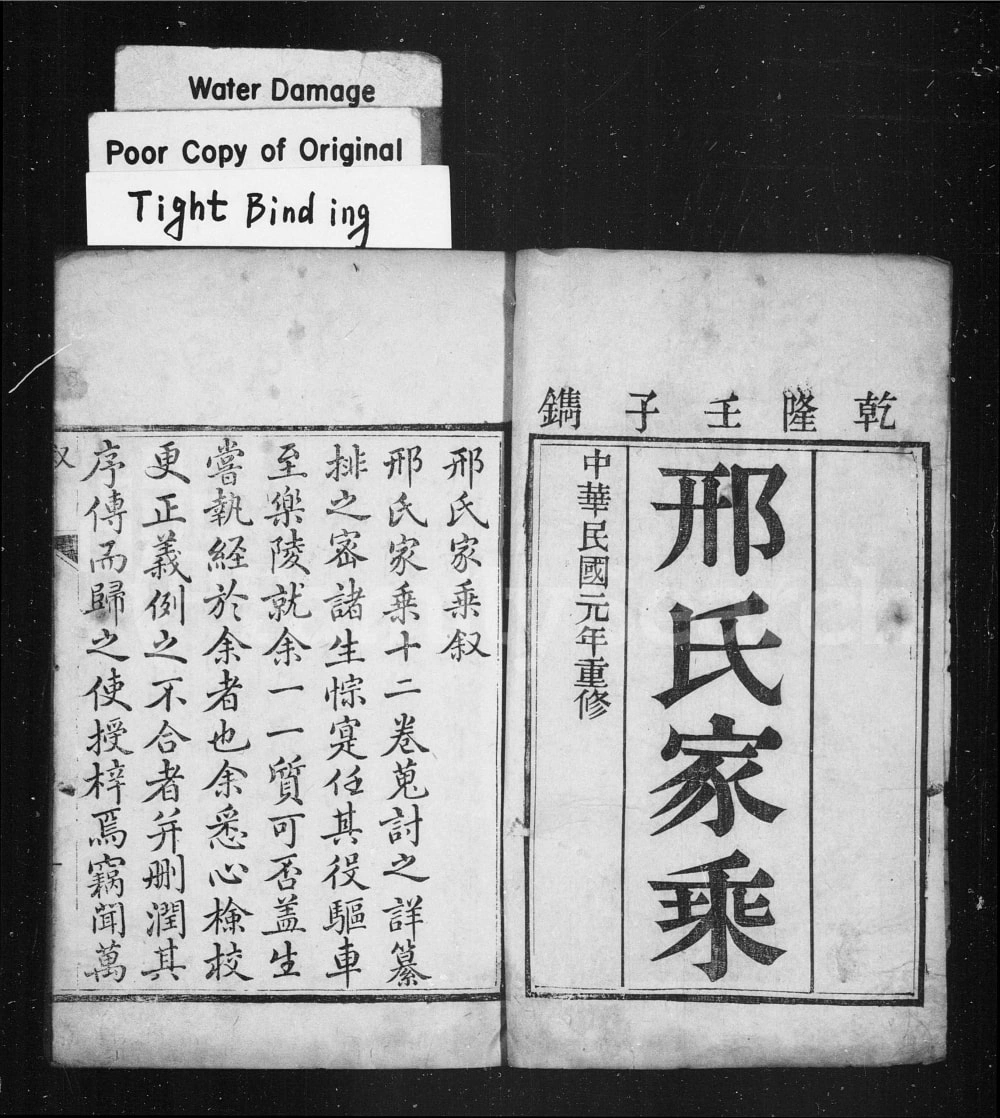 Water Damage
Poor Copy of Original
Tight Binding
乾隆壬子鐫
邢氏家乘
中華民國元年重修
邢氏家乗叙
邢氏家乗十二卷蒐討之詳纂
排之宻諸生悰寔任其役驅車
至樂陵就余一一質可否盖生
嘗執經於余者也余悉心檢校
更正義例之不合者并删潤其
序傳而歸之使授梓焉竊聞萬
叙